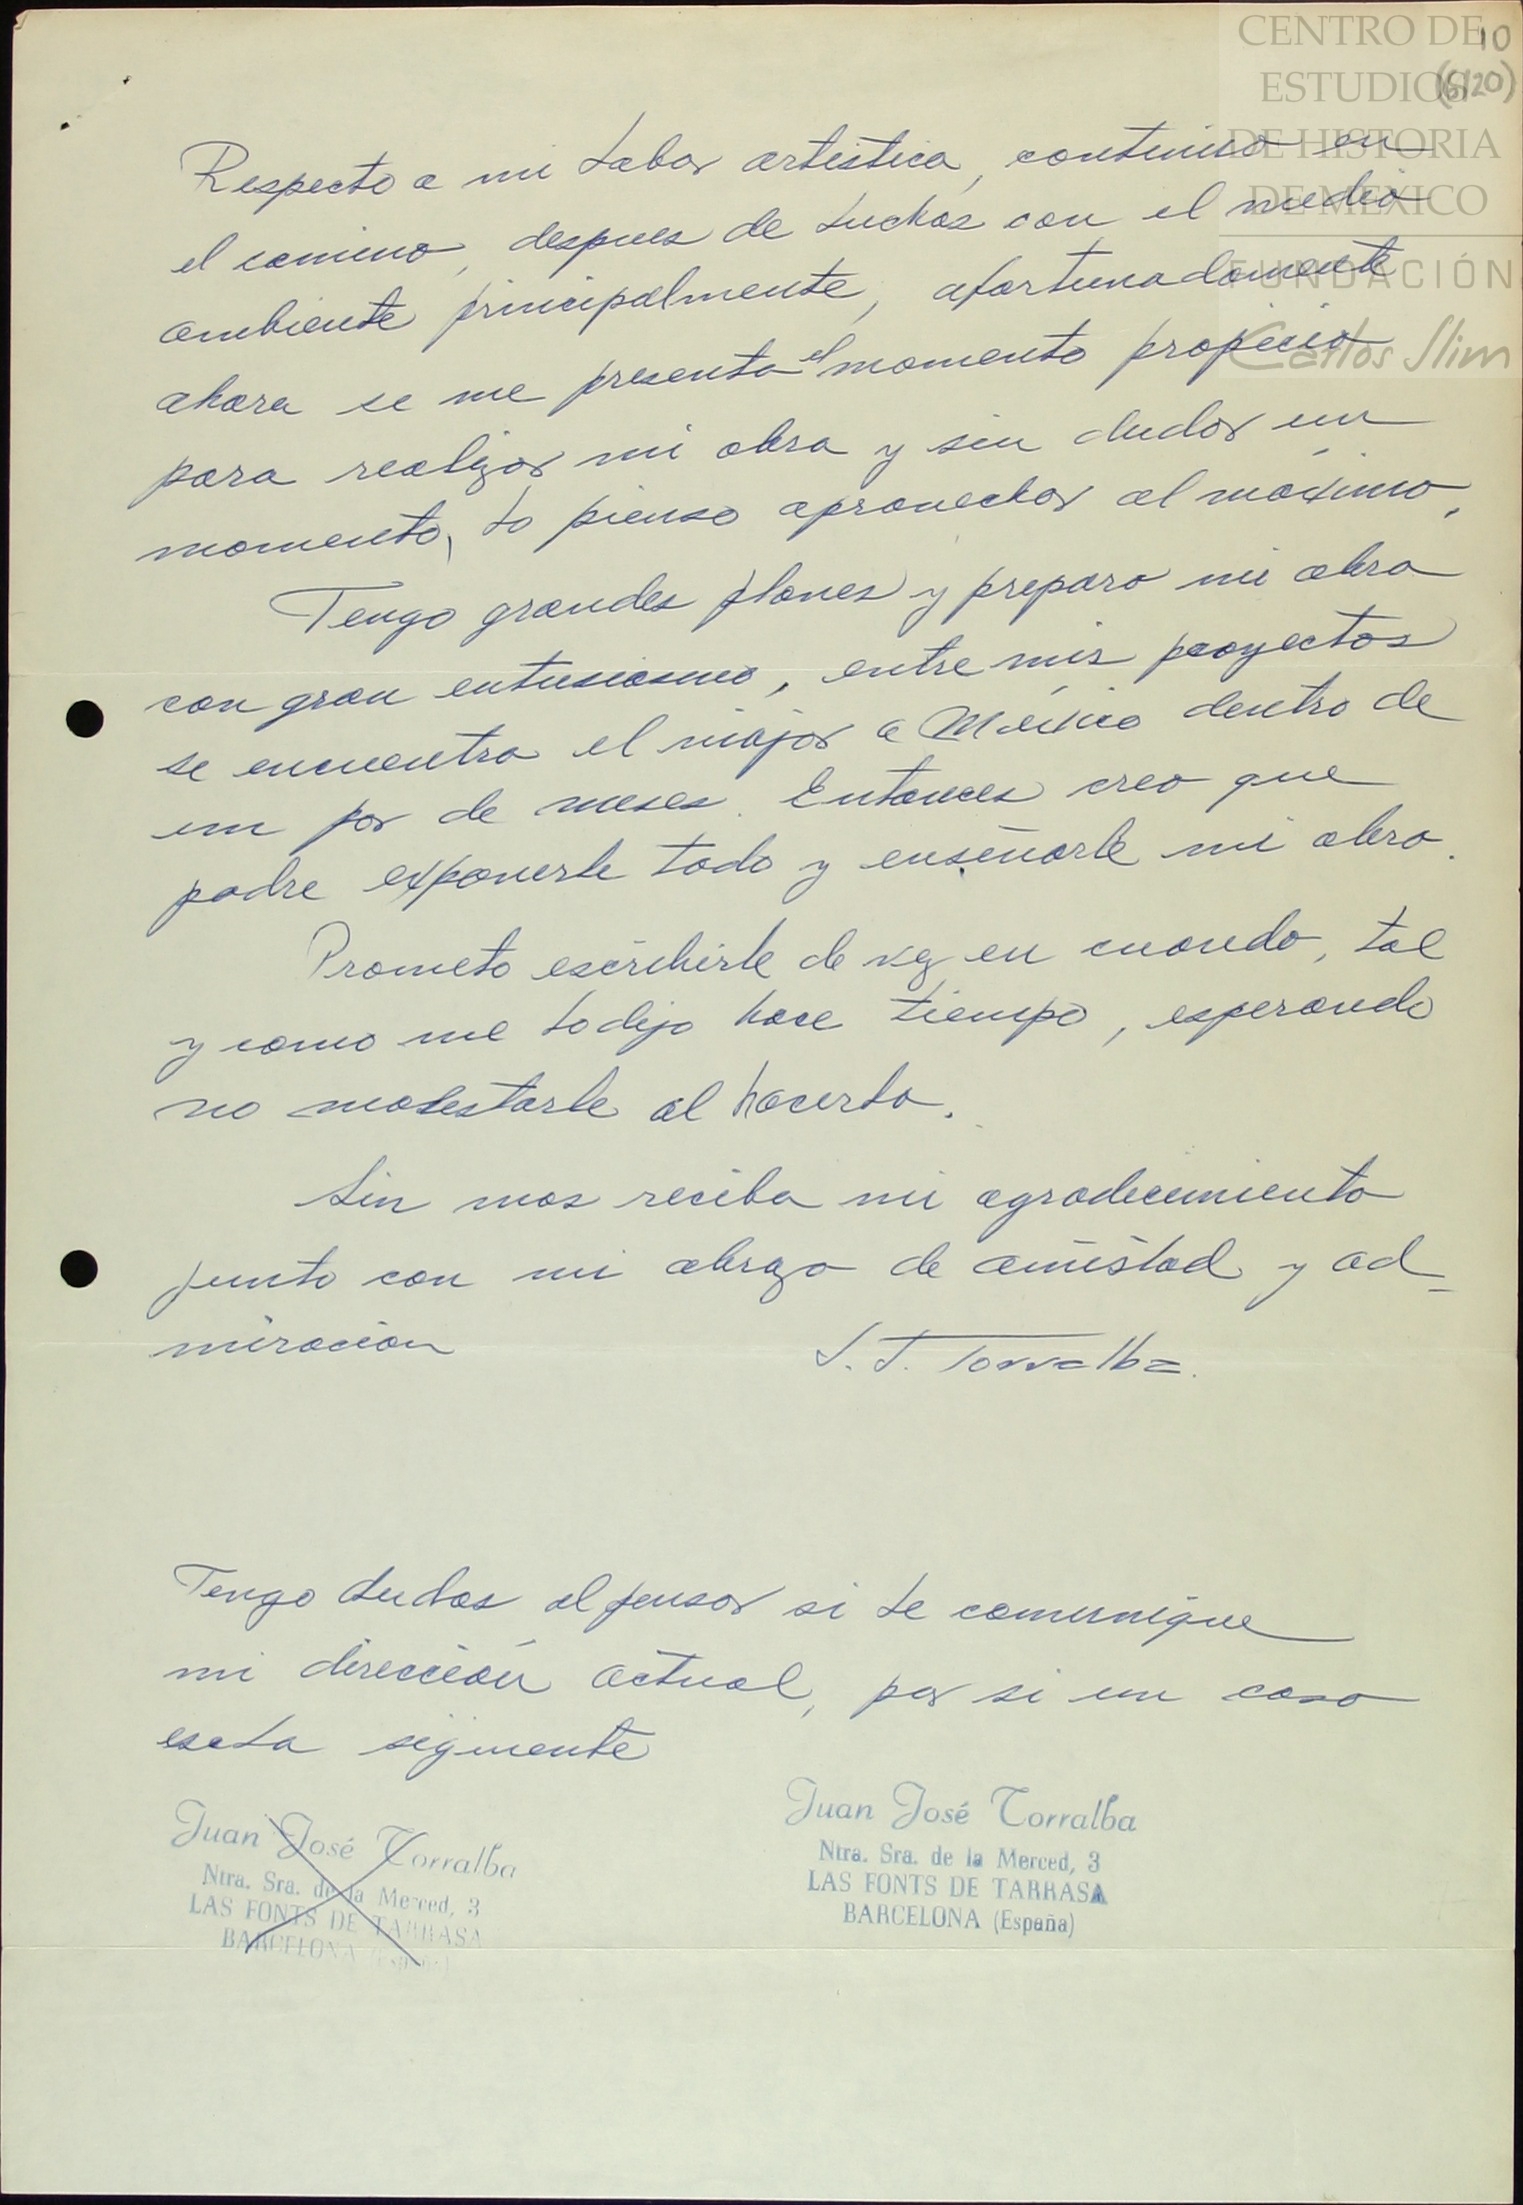 CENTRO DE
ESTUDIOS
DE HISTORIA
DE MÉXICO
FUNDACIÓN
Carlos Slim
10
(6120)
Respecto a mi labor artistica, continuo en
el camino, despues de luchas con el medio
ambiente principalmente, afortunadamente
ahora se me presenta el momento propicio
para realizar mi obra y sin dudar un
momento, lo pienso aprovechar al máximo.
Tengo grandes planes y preparo mi obra
con gran entusiasmo, entre mis proyectos
se encuentra el viajar a México dentro de
un par de meses. Entonces creo que
podre exponerle todo y enseñarle mi obra.
Prometo escribirle de vez en cuando, tal
y como me lo dijo hace tiempo, esperando
no molestarle al hacerlo.
Sin mas reciba mi agradecimiento
junto con mi abrazo de amistad y ad-
miracion
J. J. Torralba.
Tengo dudas al pensar si le comunique
mi dirección actual, por si un caso
es la siguiente
Juan José Torralba
Ntra. Sra. de la Merced, 3
LAS FONTS DE TARRASA
BARCELONA (España)
Juan José Torralba
Ntra. Sra. de la Merced, 3
LAS FONTS DE TARRASA
BARCELONA (España)